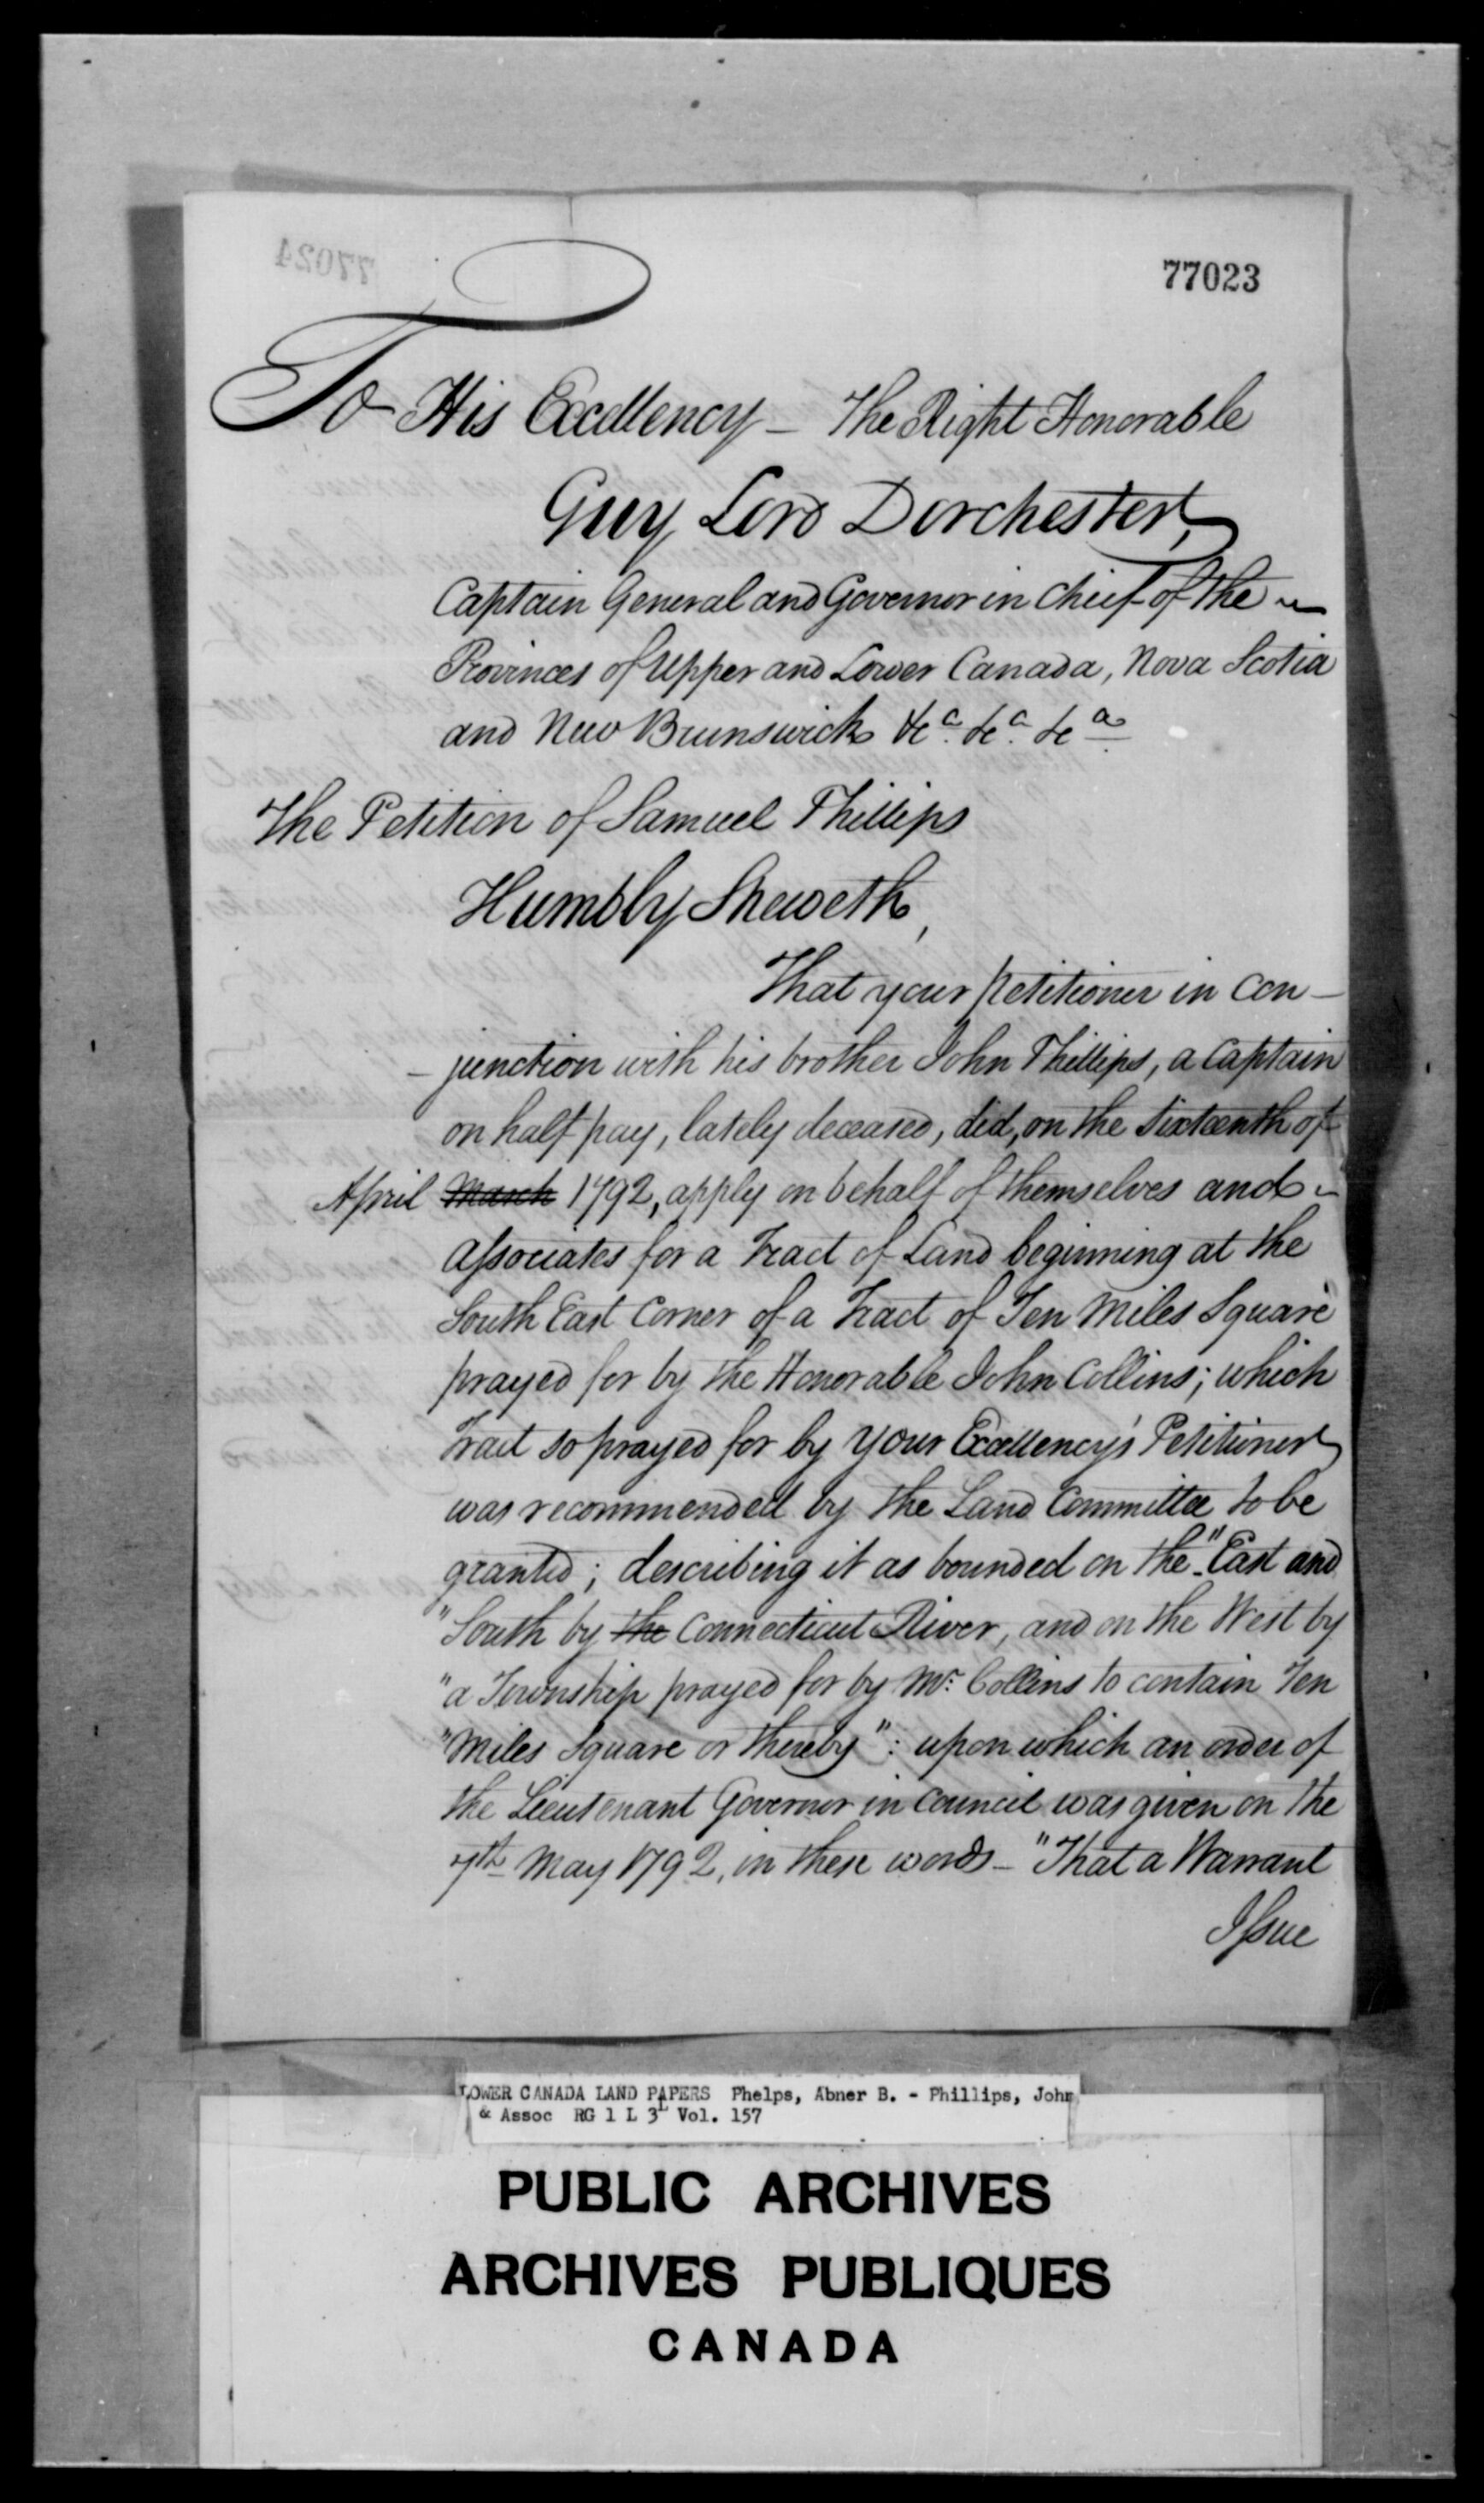 77024
77023
To His Excellency – The Right Honorable
Guy Lord Dorchester,
Captain General and Governor in Chief of the
Provinces of Upper and Lower Canada, Nova Scotia
and New Brunswick &c.ª &c.ª &c.ª
The Petition of Samuel Phillips
Humbly Sheweth,
That your petitioner in con-
-junction with his brother John Phillips, a Captain
on half pay, lately deceased, did, on the sixteenth of
April March 1792, apply on behalf of themselves and
associates for a Tract of Land beginning at the
South East Corner of a Tract of Ten Miles Square
prayed for by the Honorable John Collins; which
Tract so prayed for by your Excellency's Petitioner
was recommended by the Land Committee to be
granted; describing it as bounded on the "East and
"South by the Connecticut River, and on the West by
"a Township prayed for by Mr. Collins to contain Ten
"Miles Square or thereby": upon which an order of
the Lieutenant Governor in Council was given on the
7th May 1792, in these words – "That a Warrant
Issue
LOWER CANADA LAND PAPERS Phelps, Abner B. - Phillips, John
& Assoc RG 1 L 3L Vol. 157
PUBLIC ARCHIVES
ARCHIVES PUBLIQUES
CANADA